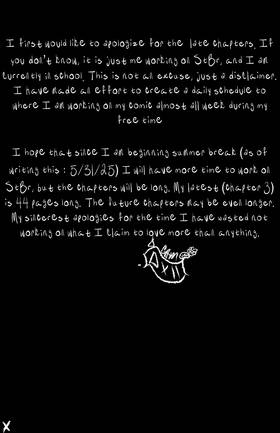 I first would like to apologize for the late chapters. If
you don't know, it is just me working on StBr, and I am
currently in school. This is not an excuse, just a disclaimer.
I have made an effort to create a daily schedule to
where I am working on my comic almost all week during my
free time
I hope that since I am beginning summer break (as of
writing this : 5/31/25) I will have more time to work on
StBr, but the chapters will be long. My latest (chapter 3)
is 44 pages long. The future chapters may be even longer.
My sincerest apologies for the time I have wasted not
working on what I claim to love more than anything.
X